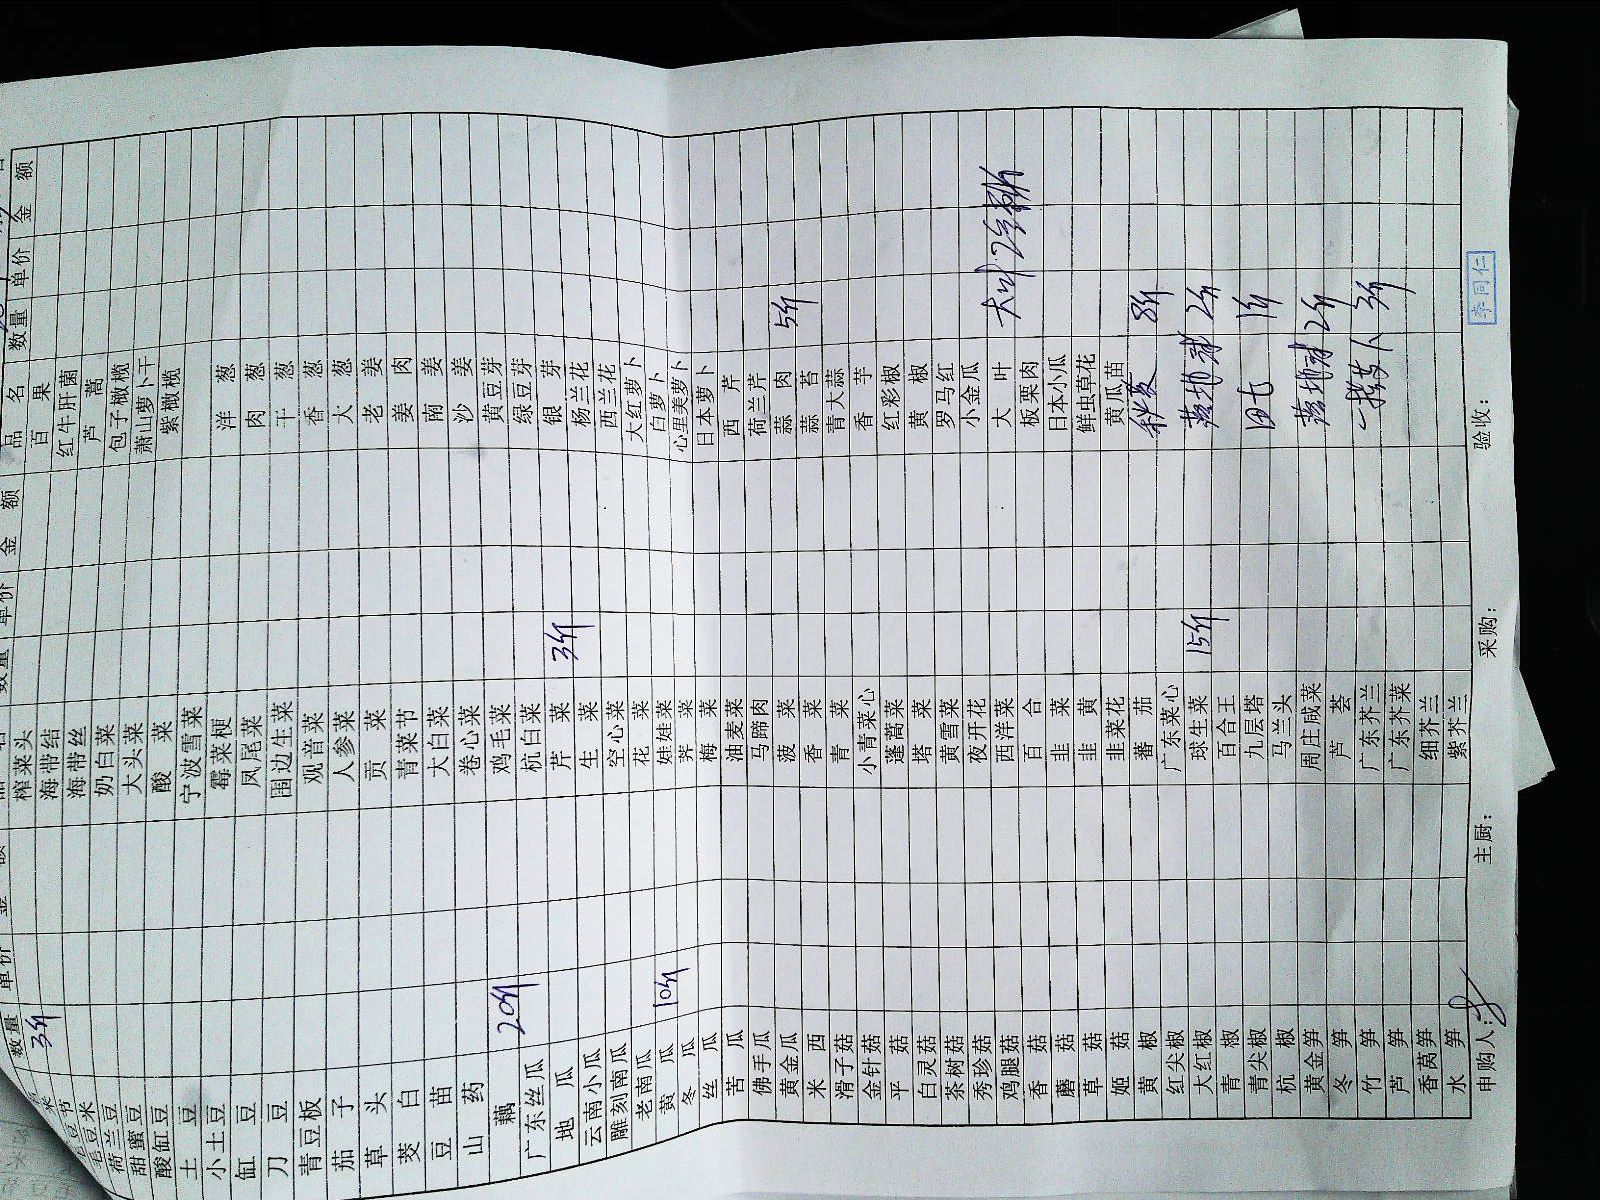 数量 单价
3斤
毛豆米
荷兰豆
甜蜜豆
酸缸豆
土豆
小土豆
缸豆
刀豆
青豆板
茄子
草头
茭白
豆苗
山药
藕 20斤
广东丝瓜
地瓜
云南小瓜
雕刻南瓜
老南瓜
黄瓜 10斤
冬瓜
丝瓜
苦瓜
佛手瓜
黄金瓜
米西
滑子菇
金针菇
平菇
白灵菇
茶树菇
秀珍菇
鸡腿菇
香菇
蘑菇
草菇
姬菇
黄椒
红尖椒
大红椒
青椒
青尖椒
杭椒
黄金笋
冬笋
竹笋
芦笋
香莴笋
水笋
数量 单价 金额
榨菜头
海带结
海带丝
奶白菜
大头菜
酸菜
宁波雪菜
霉菜梗
凤尾菜
围边生菜
观音菜
人参菜
贡菜
青菜节
大白菜
卷心菜
鸡毛菜
杭白菜
芹菜 3斤
生菜
空心菜
花菜
娃娃菜
荠菜
梅菜
油麦菜
马蹄肉
菠菜
香菜
青菜
小青菜心
蓬蒿菜
塔菜
黄雪菜
夜开花
西洋菜
百合
韭菜
韭黄
韭菜花
蕃茄
广东菜心
球生菜 15斤
百合王
九层塔
马兰头
周庄咸菜
芦荟
广东芥兰
广东芥菜
细芥兰
紫芥兰
品名 数量 单价 金额
百果
红牛肝菌
芦蒿
包子橄榄
萧山萝卜干
紫橄榄
洋葱
肉葱
干葱
香葱
大葱
老姜
姜肉
南姜
沙姜
黄豆芽
绿豆芽
银芽
杨兰花
西兰花
大红萝卜
白萝卜
心里美萝卜
日本萝卜
西芹
荷兰芹
蒜肉 5斤
蒜苔
青大蒜
香芋
红彩椒
黄椒
罗马红
小金瓜
大叶
板栗肉
日本小瓜
鲜虫草花
黄瓜苗
秋葵 8斤
2斤
田七 1斤
2斤
3斤
申购人: 主厨: 采购: 验收: 李同仁